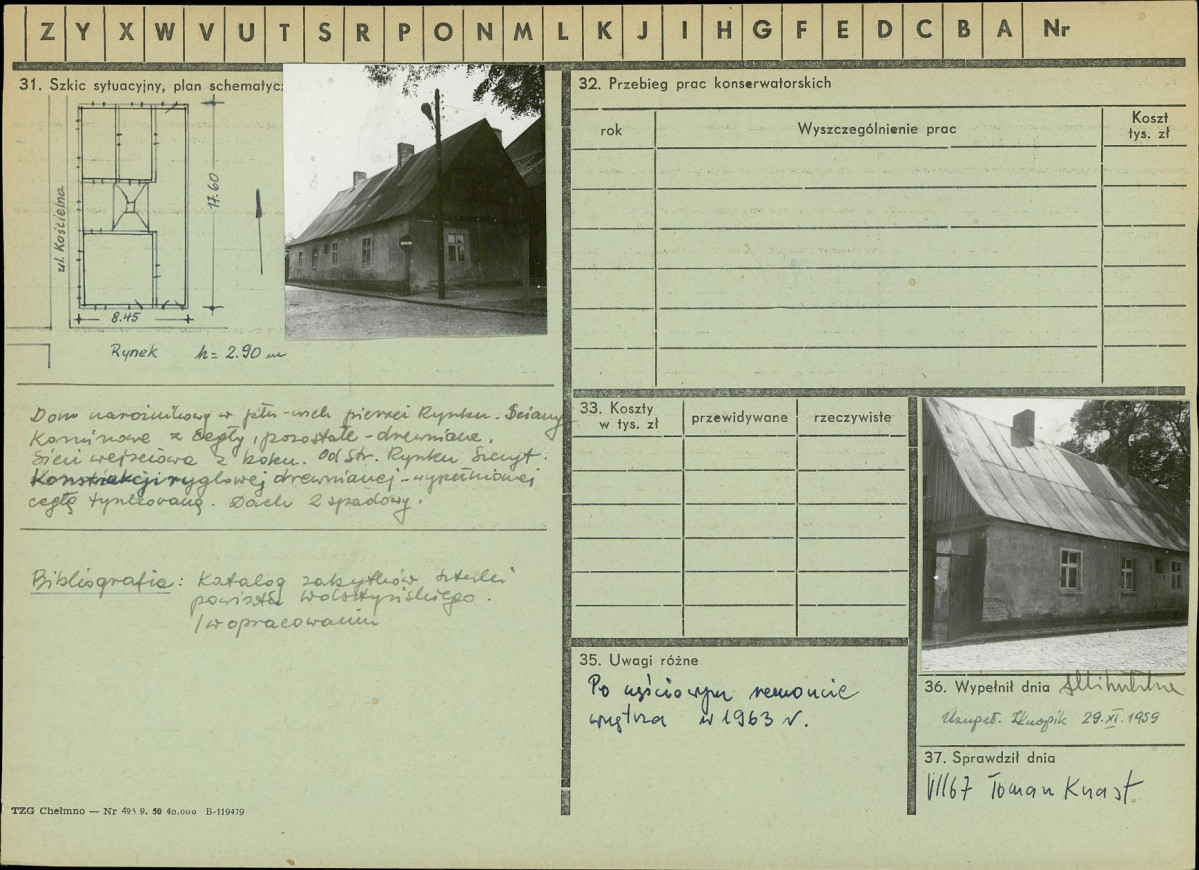 Z Y X W V U T S R P O N M L K J I H G F E D C B A Nr
31. Szkic sytuacyjny, plan schematycz
ul. Kościelna
17.60
8.45
Rynek h = 2.90 m
Dom narożnikowy w płn-wsch pierzei Rynku. Ściany
Kominowe z cegły, pozostałe - drewniane.
Sień wejściowa z boku. Od Str. Rynku Szczyt.
Konstrukcji ryglowej drewnianej - wypełnionej
cegłą tynkowaną. Dach 2 spadowy.
Bibliografia: Katalog zabytków sztuki
powiatu Wolsztyńskiego.
/w opracowaniu
TZG Chełmno — Nr 495 9. 50 40.000 B-119479
32. Przebieg prac konserwatorskich
rok Wyszczególnienie prac Koszt
tys. zł
33. Koszty
w tys. zł przewidywane rzeczywiste
35. Uwagi różne
Po częściowym remoncie
wnętrza w 1963 r.
36. Wypełnił dnia
Uzupeł. 29.XI.1959
37. Sprawdził dnia
VII 67 Roman Knast